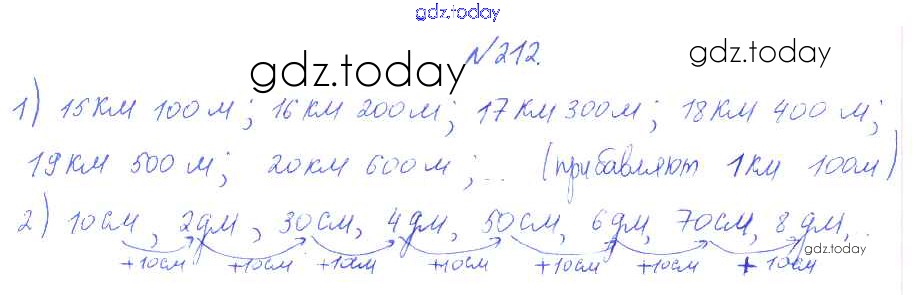 gdz.today
№212.
gdz.today gdz.today
1) 15км 100м; 16км 200м; 17км 300м; 18км 400м;
19км 500м; 20км 600м; ... (прибавляют 1км 100м)
2) 10см, 2дм, 30см, 4дм, 50см, 6дм, 70см, 8дм, ...
gdz.today
+10см +10см +10см +10см +10см +10см +10см